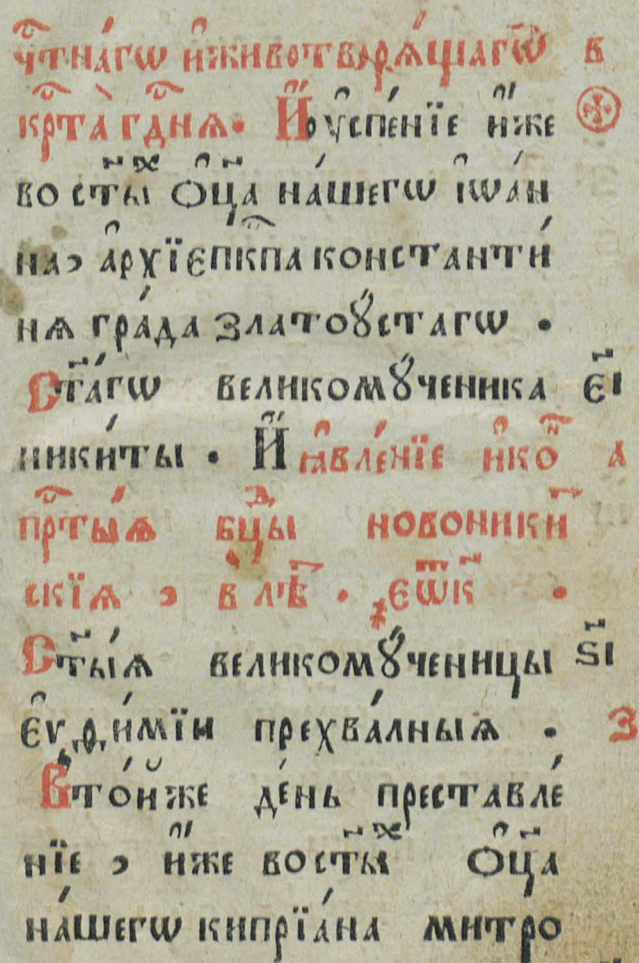 чⷭ҇тна́гѡ и҆животворѧ́щагѡ в
крⷭ҇та̀ гдⷭ҇нѧ. И҆́ ᲂу҆спе́нїе и҆́же
во ст҃ы́хъ ѻ҆ц҃а на́шегѡ і҆ѡа́н
на, а҆рхїепкⷭ҇па константи́
нѧ гра́да златоꙋ́стагѡ .
Ст҃а́гѡ великомꙋ́ченика є҃і
ники́ты . И҆́ ꙗ҆вле́нїе и҆ко́ны а
прⷭ҇тыѧ бцⷣы новоники́т
скїѧ , в лѣ́т . ҂еѿк҃ .
Ст҃ы́ѧ великомꙋ́ченицы ѕ҃і
є҆ѵѳи́мїи прехва́лныѧ . З
Вто́йже де́нь преставле́
нїе , и҆́же во ст҃ы́хъ ѻ҆ц҃а
на́шегѡ кипрїа́на митро